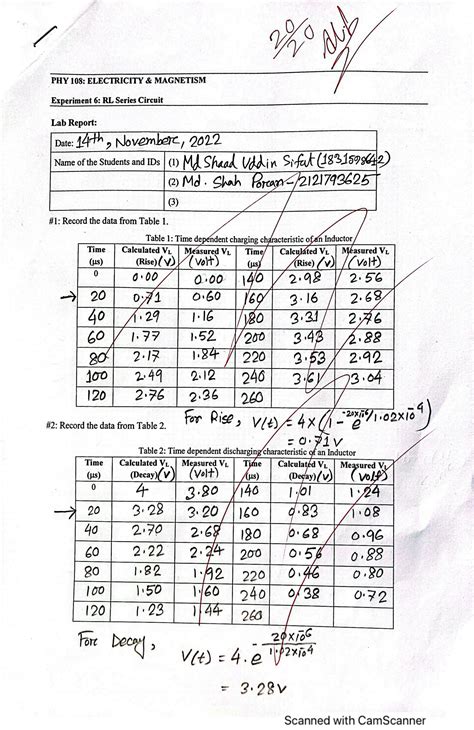 20/20
PHY 108: ELECTRICITY & MAGNETISM
Experiment 6: RL Series Circuit
Lab Report:
Date: 14th, November, 2022
Name of the Students and IDs (1) Md Shaad Uddin Sifat (1831598642)
(2) Md. Shah Poran - 2121793625
(3)
#1: Record the data from Table 1.
Table 1: Time dependent charging characteristic of an Inductor
Time (μs) Calculated VL (Rise) (V) Measured VL (Volt) Time (μs) Calculated VL (Rise) (V) Measured VL (Volt)
0 0.00 0.00 140 2.98 2.56
→ 20 0.71 0.60 160 3.16 2.68
40 1.29 1.16 180 3.31 2.76
60 1.77 1.52 200 3.43 2.88
80 2.17 1.84 220 3.53 2.92
100 2.49 2.12 240 3.61 3.04
120 2.76 2.36 260
For Rise, V(t) = 4×(1 - e^-20×10^-6/1.02×10^-4)
= 0.71v
#2: Record the data from Table 2.
Table 2: Time dependent discharging characteristic of an Inductor
Time (μs) Calculated VL (Decay) (V) Measured VL (Volt) Time (μs) Calculated VL (Decay) (V) Measured VL (Volt)
0 4 3.80 140 1.01 1.24
→ 20 3.28 3.20 160 0.83 1.08
40 2.70 2.68 180 0.68 0.96
60 2.22 2.24 200 0.56 0.88
80 1.82 1.92 220 0.46 0.80
100 1.50 1.60 240 0.38 0.72
120 1.23 1.44 260
For Decay,
V(t) = 4.e^-20×10^-6/1.02×10^-4
= 3.28v
Scanned with CamScanner